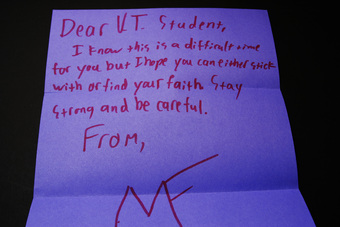 Dear V.T. Student,
I know this is a difficult time
for you but I hope you can either stick
with or find your faith. Stay
strong and be careful.
From,
MF